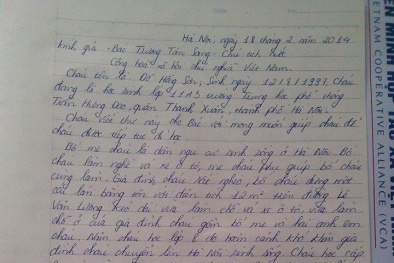 Hà Nội, ngày 18 tháng 2 năm 2014
Kính gửi - Bác Trương Tấn Sang - Chủ tịch nước
Cộng hoà xã hội chủ nghĩa Việt Nam.
Cháu tên là Đỗ Hồng Sơn, Sinh ngày 12/8/1997. Cháu
đang là học sinh lớp 11A5 trường Trung học phổ thông
Trần Hưng Đạo, quận Thanh Xuân, thành phố Hà Nội.
Cháu viết thư này cho Bác với mong muốn giúp cháu để
cháu được tiếp tục đi học
Bố mẹ cháu là dân ngụ cư sinh sống ở Hà Nội. Bố
cháu làm nghề vá xe ô tô, mẹ cháu phụ giúp bố cháu
cùng làm. Gia đình cháu rất nghèo, bố cháu dựng một
cái lán bằng tôn với diện tích 12m² trên đường Lê
Văn Lương kéo dài vừa làm chỗ vá xe ô tô, vừa làm
chỗ ở của gia đình cháu gồm bố mẹ và hai anh em
cháu. Năm cháu học lớp 6 do hoàn cảnh khó khăn gia
đình cháu chuyển lên Hà Nội sinh sống. Cháu học cấp
VIETNAM COOPERATIVE ALLIANCE (VCA)